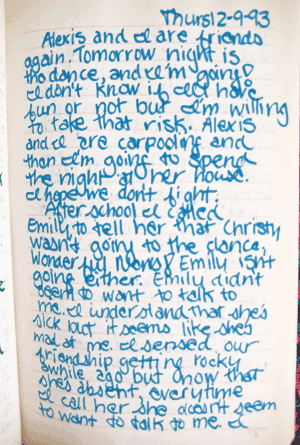 Thurs 12-9-93
Alexis and I are friends
again. Tomorrow night is
the dance, and I'm going!
I don't know if I'll have
fun or not but I'm willing
to take that risk. Alexis
and I are carpooling and
then I'm going to spend
the night at her house.
I hope we dont fight.
After school I called
Emily to tell her that Christy
wasn't going to the dance,
Wonderful News! Emily isnt
going either. Emily didnt
seem to want to talk to
me. I understand that she's
sick but it seems like shes
mad at me. I sensed our
friendship getting rocky
awhile ago but now that
shes absent, everytime
I call her she doesnt seem
to want to talk to me. I